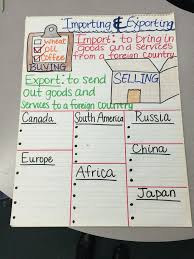 Importing & Exporting
Wheat
Oil
Coffee
BUYING
Import: to bring in
goods and services
from a foreign Country
Export: to send
out goods and
services to a foreign Country
SELLING
Canada
South America
Russia
Europe
Africa
China
Japan